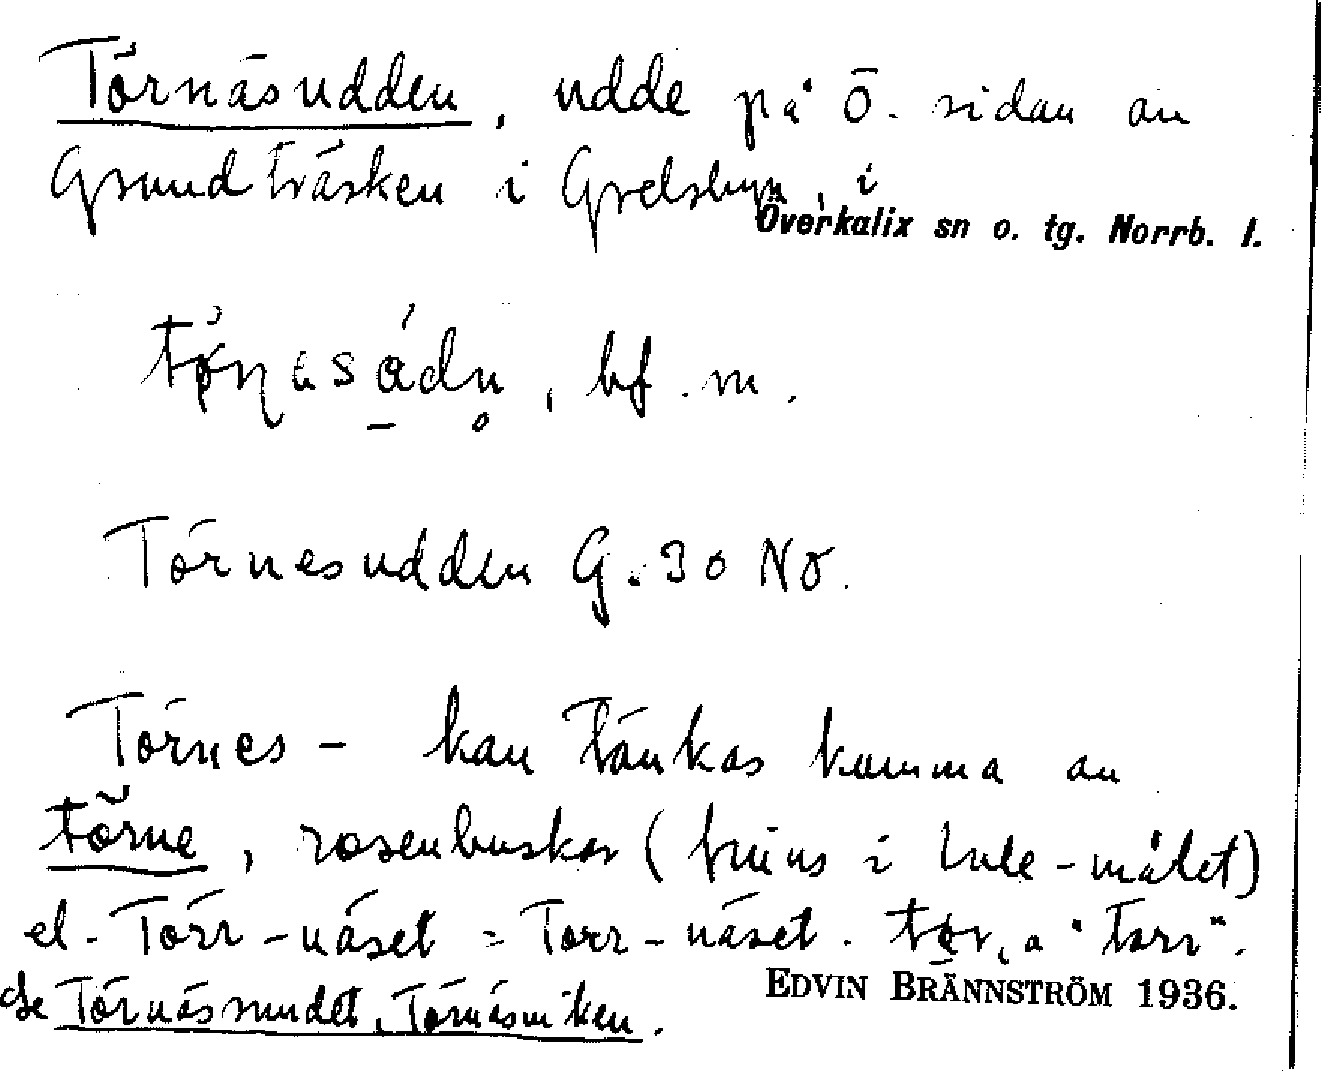 Törnäsudden, udde på Ö. sidan av
Grundträsken i Grelsbyn, i
Överkalix sn o. tg. Norrb. l.
bf. m.
Törnesudden G. 30 NO.
Törnes - kan tänkas komma av
törne, rosenbuskar (finns i Lule-målet)
el. Törr-näset = Torr-näset. "torr".
Se Törnässundet, Törnäsviken.
EDVIN BRÄNNSTRÖM 1936.